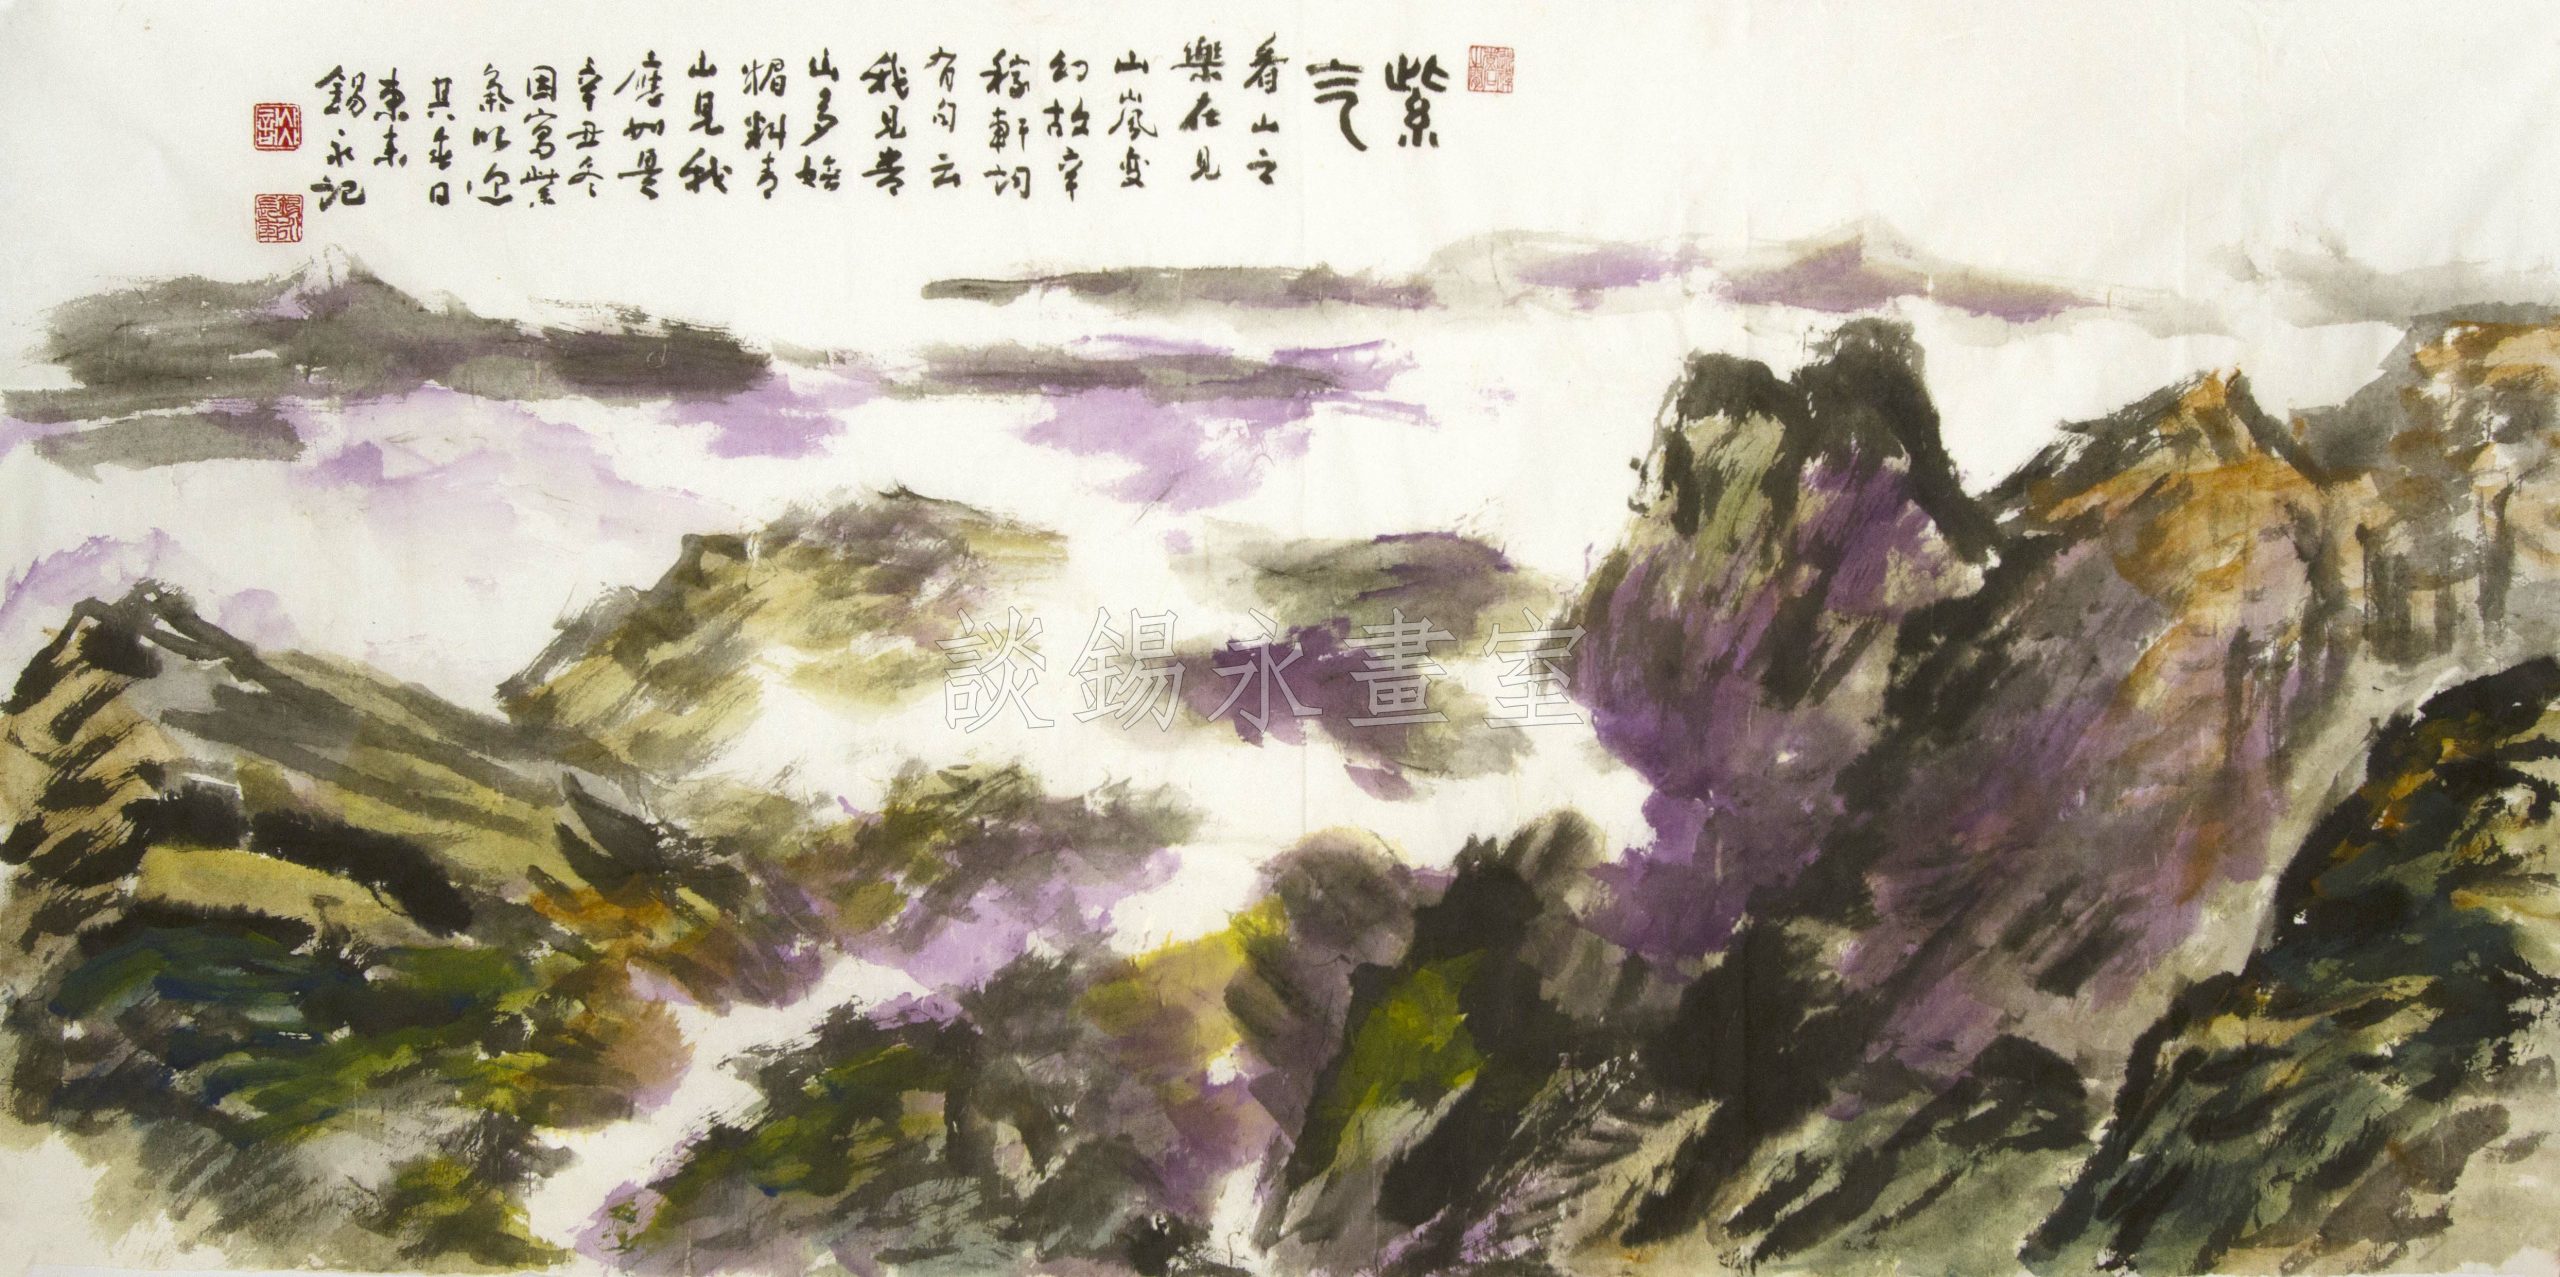 紫
气
看山之
樂在見
山嵐变
幻故辛
稼軒詞
有句云
我見青
山多嫵
媚料青
山見我
應如是
辛丑冬
因寫紫
氣以迎
其春日
東来
錫永記
談錫永畫室